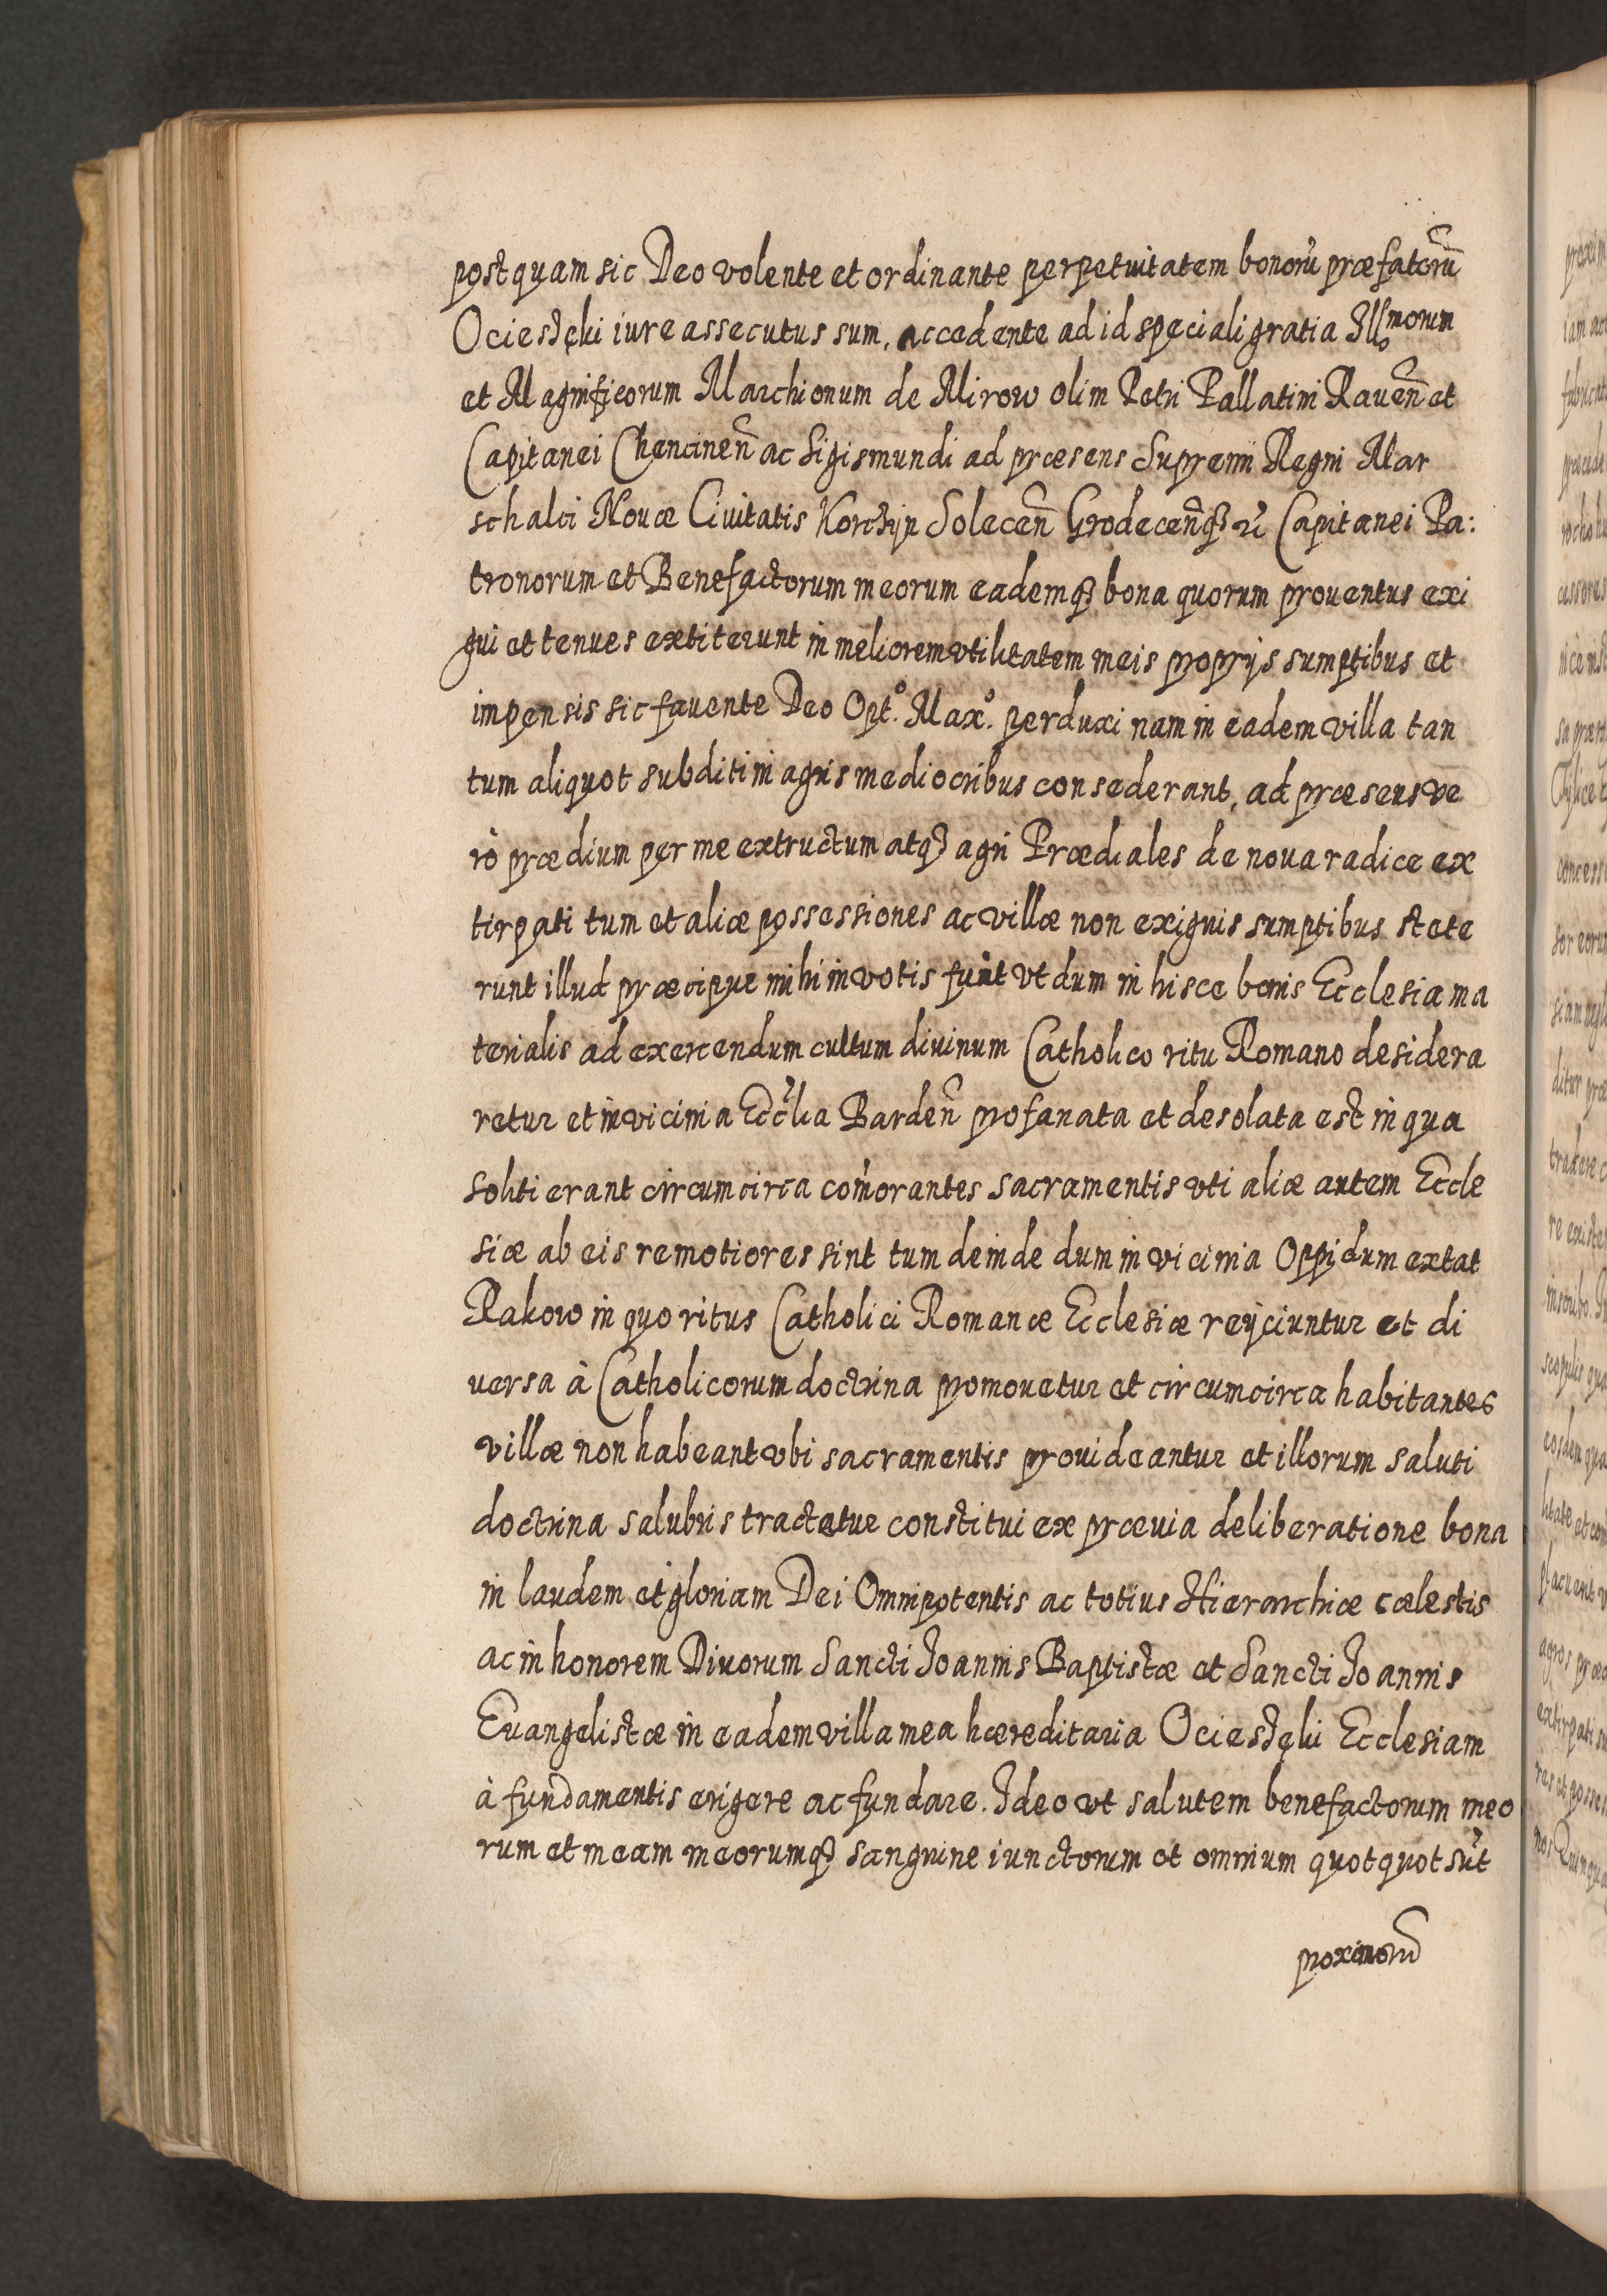 postquam sic Deo volente et ordinante perpetuitatem bonorũ præfatorũ
Ociestęki iure assecutus sum, accedente ad id speciali gratia Illmorum
et Magnificorum Marchionum de Mirow olim Petri Pallatini Rauen̄ et
Capitanei Chencinen̄ ac Sigismundi ad præsens Supremi Regni Mar
schalci Nouæ Ciuitatis Korczyn Solecen̄ Grodecen̄qȝ Capitanei Pa:
tronorum et Benefactorum meorum eademqȝ bona quorum prouentus exi
gui et tenues extiterunt in meliorem vtilitatem meis proprijs sumptibus et
impensis sic fauente Deo Opt.º Max.º perduxi nam in eadem villa tan
tum aliquot subditi in agris mediocribus consederant, ad præsens ve
rò prædium per me extructum atqȝ agri Prædiales de noua radice ex
tirpati tum et aliæ possessiones ac villæ non exiguis sumptibus stete
runt illud præcipue mihi in votis fuit vt dum in hisce bonis Ecclesia ma
terialis ad exercendum cultum diuinum Catholico ritu Romano desidera
retur et in vicinia Eccl̃ia Barden̄ profanata et desolata est in qua
soliti erant circumcirca com̃orantes sacramentis vti aliæ autem Eccle
siæ ab eis remotiores sint tum deinde dum in vicinia Oppidum extat
Rakow in quo ritus Catholici Romanæ Ecclesiæ reÿciuntur et di
uersa à Catholicorum doctrina promouetur et circumcirca habitantes
villæ non habeant vbi sacramentis prouideantur et illorum saluti
doctrina salubris tractetur constitui ex præuia deliberatione bona
in laudem et gloriam Dei Omnipotentis ac totius Hierarchiæ cælestis
ac in honorem Diuorum Sancti Joannis Baptistæ et Sancti Joannis
Euangelistæ in eadem villa mea hæreditaria Ociestęki Ecclesiam
à fundamentis erigere ac fundare. Ideo vt salutem benefactorum meo
rum et meam meorumqȝ sanguine iunctorum et omnium quotquot sũt
proximorũ